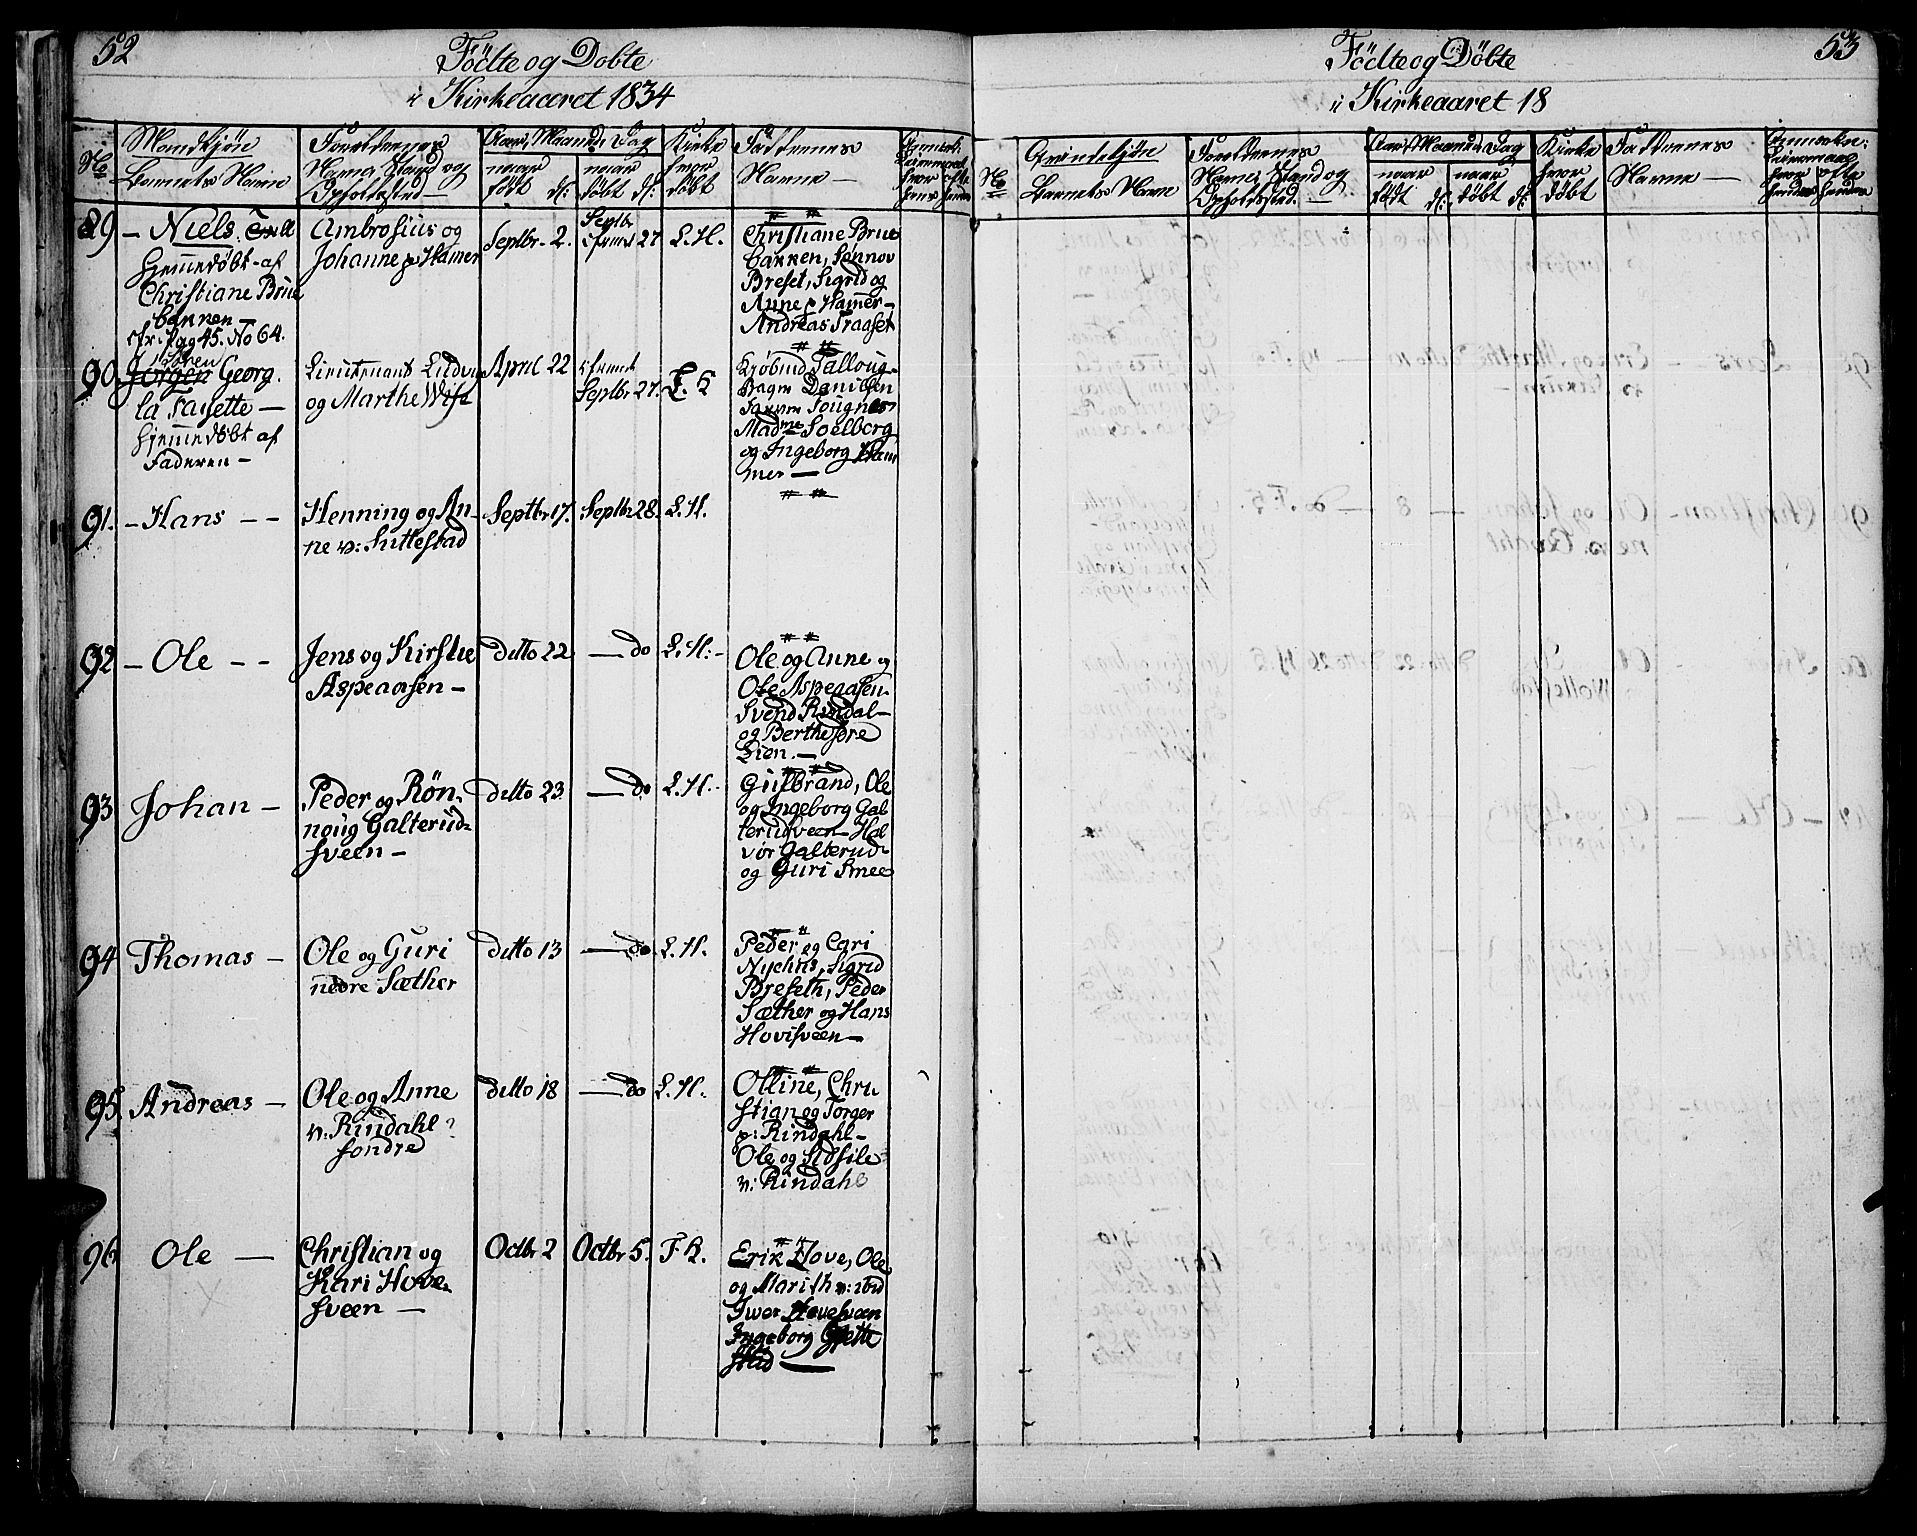 52
Födte og Döbte
i Kirkeaaret 1834
No
Mandkjön
Barnets Navn
Forældrenes
Navne, Stand og
Opholdssted
Aar, Maaned, Dag
naar
födt
naar
döbt
Kirke
hvor
döbt
Faddernes
Navne —
89 — Niels.
Hjemmedöbt af
Christiane Brue
bakken —
cfr. Pag 45. No 64.
Ambrosius og
Johanne p Hamer
Septbr. 2.
Septbr
27
L. H.
Christiane Brue
bakken, Sönnov
Breset, Sigrid og
Anne p Hamer —
Andreas Fragset
90.
Jörgen Georg.
la Fayette —
Hjemmedöbt af
Faderen —
Lieutenant Ludvig
og Marthe Wist
April 22
Septbr 27.
Danielsen
Madme Soelberg
og Ingeborg Ham
mer —
91. — Hans — —
Henning og An-
ne n: Suttestad
Septbr 17.
Septbr 28.
L. H.
92 — Ole — —
Jens og Kirstie
Aspeaasen —
ditto 22
— do
L. H. —
Ole og Anne og
Ole Aspeaasen
Svend Rindal —
og Berthe söre
Lien. —
93 Johan —
Peder og Rön-
noug Galterud-
sveen —
ditto 23
— do
L. H.
Gulbrand, Ole
og Ingeborg Gal
terudsveen — Hal
vor Galterud
og Guri Smee
94 Thomas —
Ole og Guri
nedre Sæther
ditto 13
— do
L. H.
Peder og Cari
Nyehus, Sigrid
Breseth, Peder
Sæther og Hans
Hovisveen —
95. Andreas —
Ole og Anne
n: Rindahl
söndre
ditto 18
— do
L. H.
Olline, Chri
stian og Torger
p: Rindahl —
Ole og Sidsile
n: Rindahl
96 Ole —
Christian og
Kari Hove-
sveen —
Octbr 2
Octbr 5.
F. K.
Erik Hove, Ole
og Marith n: ibid
Iwer Hovesveen
Ingeborg Gjette
stad —
53
Födte og Döbte
i Kirkeaaret 18
No
Qvindekjön
Barnets Navn
Forældrenes
Navne, Stand og
Opholdssted. —
Aar, Maaned, Dag
naar
födt
naar
döbt
Kirke
hvor
döbt
Faddernes
Navne —